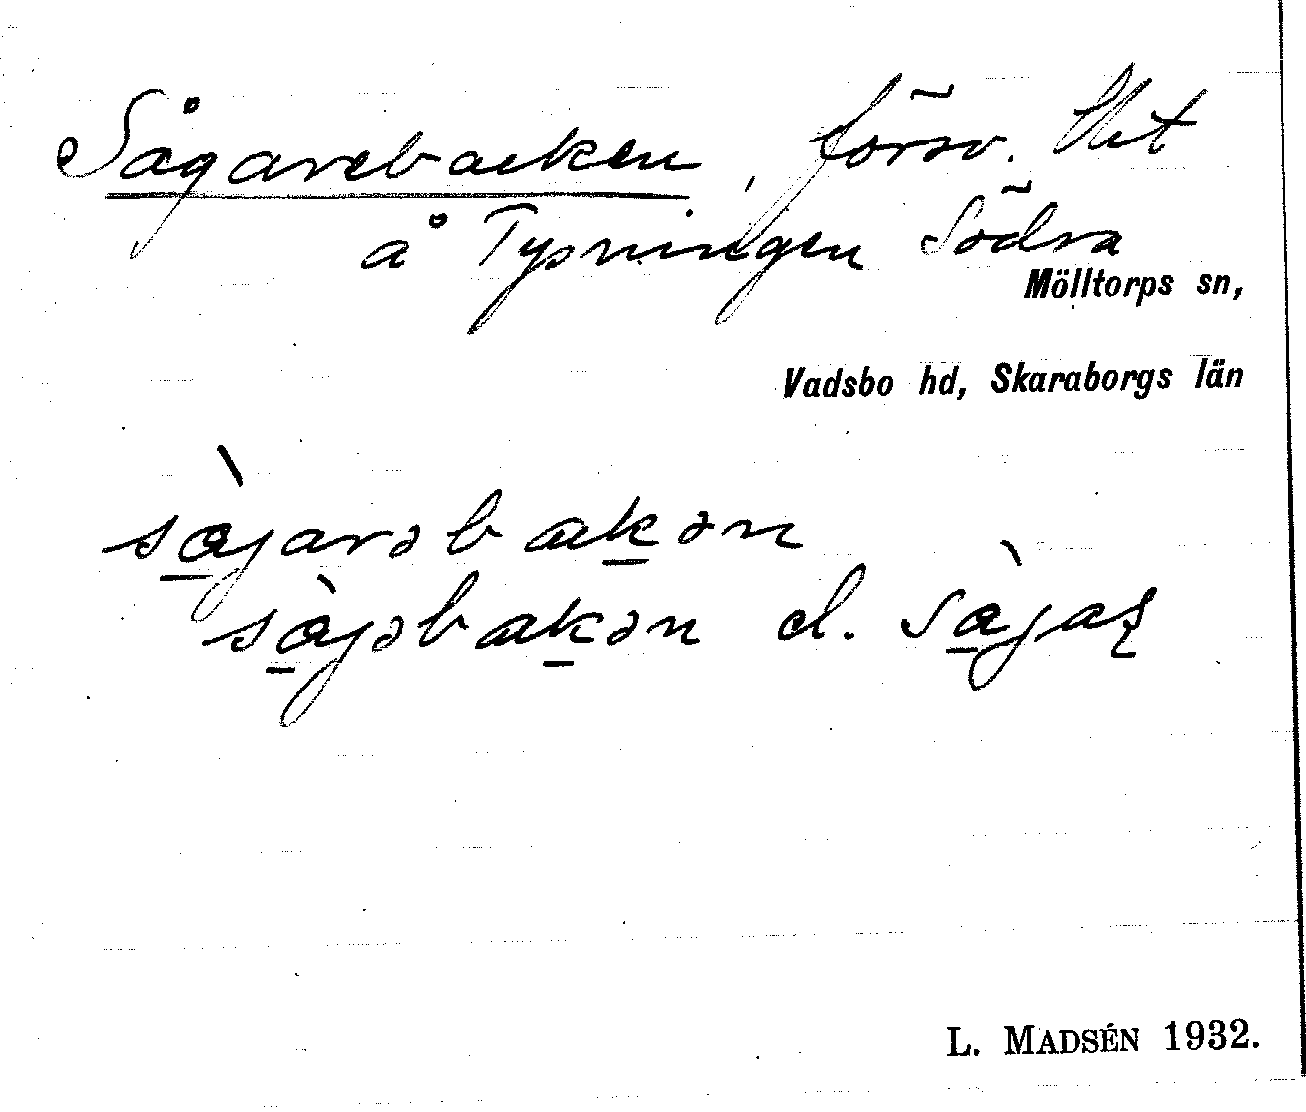 Sågarebacken, försv. lht
å Typningen Södra
Mölltorps sn,
Vadsbo hd, Skaraborgs län
sà̱jarəbaḵən
sà̱jəbaḵən el. sà̱jaʐ
L. MADSÉN 1932.